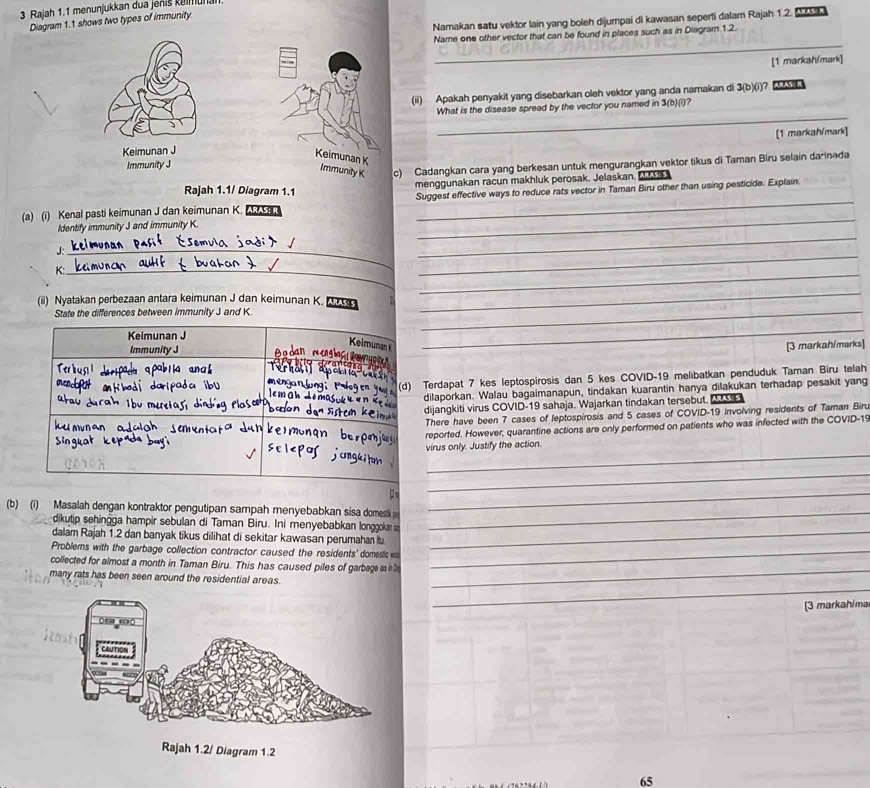 3 Rajah 1.1 menunjukkan dua jenis keimunan.
Diagram 1.1 shows two types of immunity.
Keimunan J
Immunity J
Keimunan K
Immunity K
Rajah 1.1/ Diagram 1.1
(a) (i) Kenal pasti keimunan J dan keimunan K. ARAS: R
Identify immunity J and immunity K.
J: keimunan pasif (semula jadi)
K: keimunan aktif (buatan)
(ii) Nyatakan perbezaan antara keimunan J dan keimunan K. ARAS: S
State the differences between immunity J and K.
Keimunan J
Immunity J
Keimunan K
Terhasil daripada apabila anak
mendapat antibodi daripada ibu
atau darah ibu merentasi dinding plasenta
keimunan adalah sementara dan
singkat kepada bayi
Badan menghasilkan
Terhasil apabila vaksin
mengandungi patogen yang
lemah dimasukkan ke dalam
badan dan sistem keimunan
keimunan berpanjangan
selepas jangkitan
(b) (i) Masalah dengan kontraktor pengutipan sampah menyebabkan sisa domestik
dikutip sehingga hampir sebulan di Taman Biru. Ini menyebabkan longgokan
dalam Rajah 1.2 dan banyak tikus dilihat di sekitar kawasan perumahan itu
Problems with the garbage collection contractor caused the residents' domestic
collected for almost a month in Taman Biru. This has caused piles of garbage as in
many rats has been seen around the residential areas.
CAUTION
Rajah 1.2/ Diagram 1.2
Namakan satu vektor lain yang boleh dijumpai di kawasan seperti dalam Rajah 1.2. ARAS: R
Name one other vector that can be found in places such as in Diagram 1.2.
[1 markah/mark]
(ii) Apakah penyakit yang disebarkan oleh vektor yang anda namakan di 3(b)(i)? ARAS: R
What is the disease spread by the vector you named in 3(b)(i)?
[1 markah/mark]
c) Cadangkan cara yang berkesan untuk mengurangkan vektor tikus di Taman Biru selain daripada
menggunakan racun makhluk perosak. Jelaskan. ARAS: S
Suggest effective ways to reduce rats vector in Taman Biru other than using pesticide. Explain.
[3 markah/marks]
(d) Terdapat 7 kes leptospirosis dan 5 kes COVID-19 melibatkan penduduk Taman Biru telah
dilaporkan. Walau bagaimanapun, tindakan kuarantin hanya dilakukan terhadap pesakit yang
dijangkiti virus COVID-19 sahaja. Wajarkan tindakan tersebut. ARAS: S
There have been 7 cases of leptospirosis and 5 cases of COVID-19 involving residents of Taman Biru
reported. However, quarantine actions are only performed on patients who was infected with the COVID-19
virus only. Justify the action.
[3 markah/ma
65